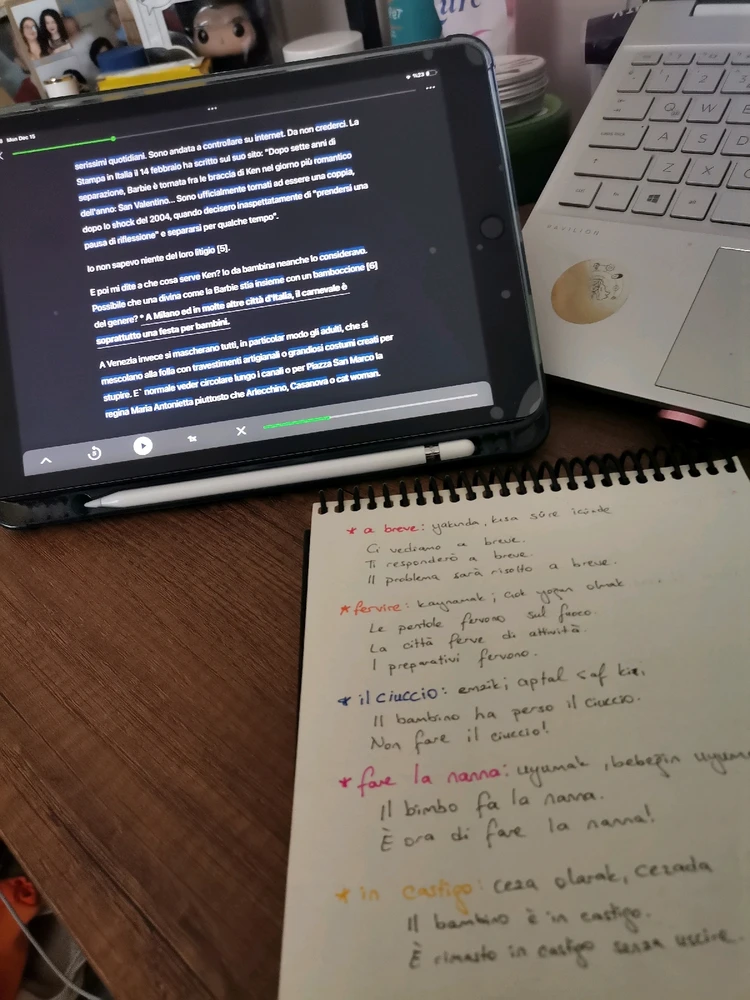 Mon Dec 15
%23
serissimi quotidiani. Sono andata a controllare su internet. Da non crederci. La
Stampa in Italia il 14 febbraio ha scritto sul suo sito: "Dopo sette anni di
separazione, Barbie è tornata fra le braccia di Ken nel giorno più romantico
dell'anno: San Valentino... Sono ufficialmente tornati ad essere una coppia,
dopo lo shock del 2004, quando decisero inaspettatamente di "prendersi una
pausa di riflessione" e separarsi per qualche tempo".
Io non sapevo niente del loro litigio [5].
E poi mi dite a che cosa serve Ken? Io da bambina neanche lo consideravo.
Possibile che una divina come la Barbie stia insieme con un bamboccione [6]
del genere? * A Milano ed in molte altre città d'Italia, il carnevale è
soprattutto una festa per bambini.
A Venezia invece si mascherano tutti, in particolar modo gli adulti, che si
mescolano alla folla con travestimenti artigianali o grandiosi costumi creati per
stupire. E` normale veder circolare lungo i canali o per Piazza San Marco la
regina Maria Antonietta piuttosto che Arlecchino, Casanova o cat woman.
PAVILION
* a breve: yakında, kısa süre içinde
Ci vediamo a breve.
Ti risponderò a breve.
Il problema sarà risolto a breve.
* fervire: kaynamak; çok yoğun olmak
Le pentole fervono sul fuoco.
La città ferve di attività.
I preparativi fervono.
* il ciuccio: emzik; aptal saf kişi
Il bambino ha perso il ciuccio.
Non fare il ciuccio!
* fare la nanna: uyumak, bebeğin uyum
Il bimbo fa la nanna.
È ora di fare la nanna!
* in castigo: ceza olarak, cezada
Il bambino è in castigo.
È rimasto in castigo senza uscire.